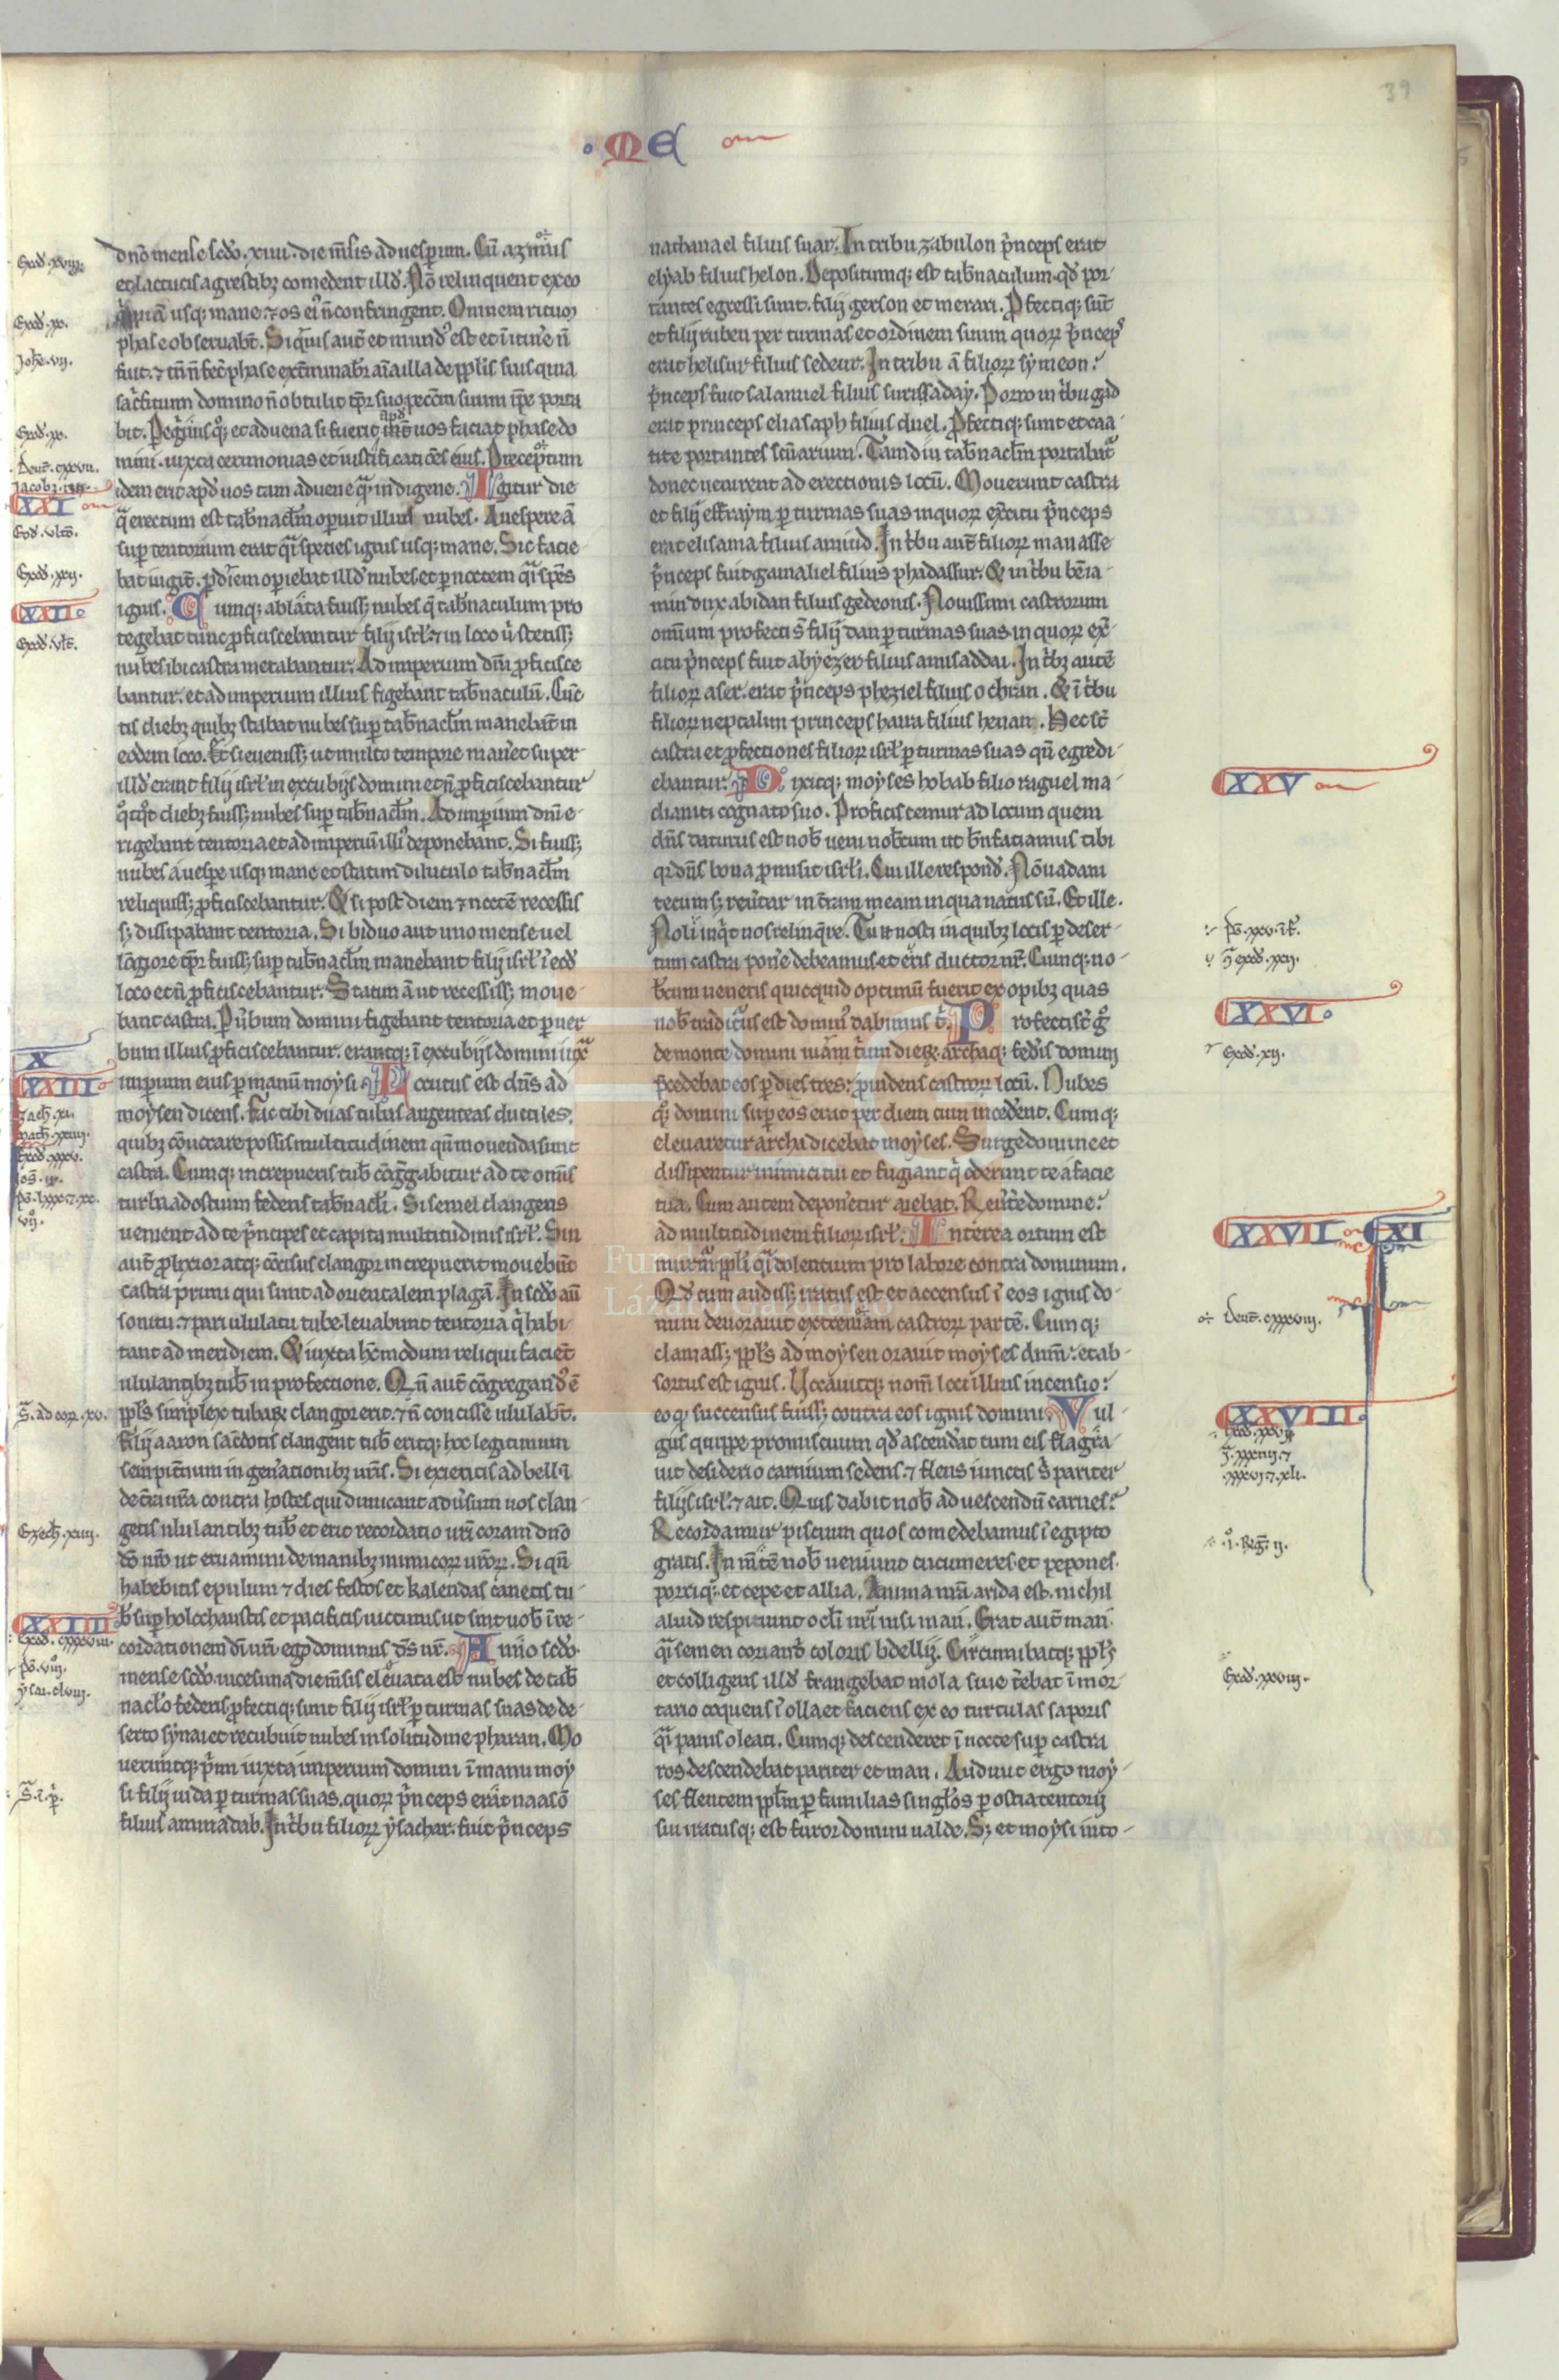 39
· ME
dño mense scđo .xiiii. die mẽsis ad uesperum. Cũ azimis
et lactucis agrestibꝫ comedent illđ. Nõ relinquent ex eo
q̃piã usqꝫ mane. ⁊ os ei' ñ confringent. Omnem rituꝫ
phase obseruabt̃. Siq̃uis aut̃ et mund' est et ĩ itiñe ñ
fuit. ⁊ tñ ñ fec̃ phase ext̃minabr̃ aĩa illa de pplis suis quia
sac̃ficium domino ñ obtulit tp̃r suo. pecc̃m suum ip̃e porta
bit. Pegrinus qͦꝫ et aduena si fuerit apđ uos faciat phase do
mini. iuxta cerimonias et iustificacões eius. Preceptum
idem erit apđ uos tam aduene q̃ indigene. Igitur die
q̃ erectum est tab̃nacl̃m operuit illud nubes. A uespere ã
sup̃ tentorium erat q̃i species ignis usqꝫ mane. Sic facie
bat iugit̃. p̱ diem operiebat illđ nubes et p̱ noctem q̃i sp̃es
ignis. Cumqꝫ ablata fuissꝫ nubes q̃ tab̃naculum pro
tegebat tunc ꝓficiscebantur filij isrl̃. ⁊ in loco u̇ stetissꝫ
nubes ibi castra metabantur. Ad imperium dñi ꝓficisce
bantur. et ad imperium illius figebant tab̃naculũ. Cũc
tis diebꝫ quibꝫ stabat nubes sup̃ tab̃nacl̃m manebãt in
eodem loco. Et si euenissꝫ ut multo tempore mañet super
illđ erant filij isrl̃ in excubijs domini et ñ ꝓficiscebantur
q̊tq̊t diebꝫ fuissꝫ nubes sup̃ tab̃nacl̃m. Ad imp̱ium dñi e
rigebant tentoria et ad imperiũ illi' deponebant. Si fuissꝫ
nubes a uesp̱e usqꝫ mane et statim diluculo tab̃nacl̃m
reliquissꝫ ꝓficiscebantur. Et si post diem ⁊ noctẽ recessis
sꝫ dissipabant tentoria. Si biduo aut uno mense uel
lõgiore tp̃r fuissꝫ sup̃ tab̃nacl̃m manebant filij isrl̃ ĩ eođ
loco et ñ ꝓficiscebantur. Statim ã ut recessissꝫ moue
bant castra. P u̇bum domini figebant tentoria et p̱ uer
bum illius ꝓficiscebantur. erantqꝫ ĩ excubijs domini iux̃
imp̱ium eius p̱ manũ moysi. Locutus est dñs ad
moysen dicens. Fac tibi duas tubas argenteas ductiles.
quibꝫ cõuocare possis multitudinem qñ mouenda sunt
castra. Cumqꝫ increpueris tub̃ cõg̃gabitur ad te om̃is
turba ad ostium federis tab̃nacl̃i. Si semel clangens
uenient ad te p̃ncipes et capita multitudinis isrl̃. Sin
aut̃ ꝓlixior atqꝫ cõcisus clangor increpuerit mouebũt
castra primi qui sunt ad orientalem plagã. In scđo aũ
sonitu. ⁊ pari ululatu tube leuabunt tentoria q̃ habi
tant ad meridiem. Et iuxta hẽ modum reliqui faciẽt
ululantibꝫ tub̃ in profectione. Qñ aut̃ cõgregand' ẽ
ppl̃s simplex tubaꝝ clangor erit. ⁊ ñ concisse ululabt̃.
Filij aaron sac̃dotis clangent tub̃ eritqꝫ hoc legitimum
sempit̃num in geñationibꝫ ur̃is. Si exieritis ad bellũ
de t̃ra ur̃a contra hostes qui dimicant adu̇sum uos clan
getis ululantibꝫ tub̃ et erit recordatio ur̃i coram dño
đo ur̃o ut eruamini de manibꝫ inimicoꝝ ur̃oꝝ. Si qñ
habebitis epulum ⁊ dies festos et kalendas canetis tu
b̃ sup̃ holochaustis et pacificis uictimis ut sint uob̃ ĩ re
cordationem đi ur̃i. ego dominus đs ur̃. Anno scđo
mense scđo. uicesima die mẽsis eleuata est nubes de tab̃
naclo federis. ꝓfectiqꝫ sunt filij isrl̃ p̱ turmas suas de de
serto synai et recubuit nubes in solitudine pharan. Mo
ueruntqꝫ p̃mi iuxta imperium domini ĩ manu moy
si filij iuda p̱ turmas suas. quoꝝ p̃nceps erat naasõ
filius aminadab. In t̃bu filioꝝ ysachar. fuit p̃nceps
nathanael filius suar. In tribu zabulon p̃nceps erat
elyab filius helon. Depositumqꝫ est tab̃naculum. qđ por
tantes egressi sunt. filij gerson et merari. Pfectiqꝫ sũt
et filij ruben per turmas et ordinem suum quoꝝ p̃ncep'
erat helisur filius sedeur. In tribu ã filioꝝ symeon.
p̃nceps fuit salamiel filius surissaday. Porro in t̃bu gad
erat princeps eliasaph filius duel. Pfectiqꝫ sunt et caa
tite portantes sc̃uarium. Tamdiu tab̃nacl̃m portabat̃
donec uenirent ad erectionis locũ. Mouerunt castra
et filij effraym p̱ turmas suas in quoꝝ ex̃citu p̃nceps
erat elisama filius amiud. In t̃bu aut̃ filioꝝ manasse
p̃nceps fuit gamaliel filius phadassur. Et in t̃bu bẽia
min dux abidan filius gedeonis. Nouissimi castrorum
omnium profecti s̃ filij dan p̱ turmas suas in quoꝝ ex̃
citu p̃nceps fuit abyezer filius amisaddai. In t̃bꝫ autẽ
filioꝝ aser. erat p̃nceps pheziel filius ochran. Et ĩ t̃bu
filioꝝ neptalim princeps haira filius henan. Hec s̃t
castra et ꝓfectiones filioꝝ isrl̃ p̱ turmas suas qñ egredi
ebantur. Dixitqꝫ moyses hobab filio raguel ma
dianiti cognato suo. Proficiscemur ad locum quem
dñs daturus est nob̃ ueni nob̃cum ut b̃nfaciamus tibi
qr dñs bona ꝓmisit isrl̃i. Cui ille responđ. Nõ uadam
tecum sꝫ reu̇tar in t̃ram meam in qua natus sũ. Et ille.
Noli inq̃t nos relinq̃re. Tu .n. nosti in quibꝫ locis p̱ deser
tum castra poñe debeamus et eris ductor nr̃. Cumqꝫ no
b̃cum ueneris quicquid optimũ fuerit ex opibꝫ quas
nob̃ traditur' est domin' dabimus t̃. Profecti s̃t g̊
de monte domini uiam t̃um dieꝝ. archaqꝫ fed̃is domini
p̃cedebat eos p̱ dies tres. ꝓuidens castroꝝ locũ. Nubes
qͦꝫ domini sup̃ eos erat per diem cum inced̃ent. Cumqꝫ
eleuaretur archa dicebat moyses. Surge domine et
dissipentur inimici tui et fugiant q̃ oderunt te a facie
tua. Cum autem depoñetur aiebat. Reu̇te domine.
ad multitudinem filioꝝ isrl̃. Interea ortum est
murm̃ ppl̃i q̃i dolentium pro labore contra dominum.
Qđ cum audissꝫ iratus est et accensus ĩ eos ignis do
mini deuorauit extremam castroꝝ partẽ. Cumqꝫ
clamassꝫ ppl̃s ad moysen orauit moyses dñm. et ab
sortus est ignis. Uocauitqꝫ nom̃ loci illius incensio.
eo qͦ succensus fuissꝫ contra eos ignis domini. Vul
gus quippe promiscuum qđ ascend̃at cum eis flagra
uit desiderio carnium sedens. ⁊ flens iunctis s̃ pariter
filijs isrl̃. ⁊ ait. Quis dabit nob̃ ad uescendũ carnes.
Recordamur piscium quos comedebamus ĩ egipto
gratis. In mẽtẽ nob̃ ueniunt cucumeres. et pepones.
porriqꝫ. et cepe et allia. Anima nr̃a arida est. nichil
aliud respiciunt oc̃li nr̃i nisi man. Erat aut̃ man
q̃i semen coriand̃ coloris bdellij. Circumibatqꝫ ppl̃s
et colligens illđ frangebat mola siue t̃ebat ĩ mor
tario coquens ĩ olla et faciens ex eo turtulas saporis
q̃i panis oleati. Cumqꝫ descenderet ĩ nocte sup̃ castra
ros descendebat pariter et man. Audiuit ergo moy
ses flentem ppl̃m p̱ familias singl̃os p̱ ostia tentorij
sui iratusqꝫ est furor domini ualde. Sꝫ et moysi into
Exođ .xviij.
Exođ .xv.
Johẽ .vij.
Exođ .xv.
Deut̃ .cxxvij.
Jacobi .iiij.
XXI
Exođ .vltõ.
Exođ .xvj.
XXII
Exođ .vlt̃.
X
XXIII
S̃. ad cor .xv.
Ezech̃ .xiiij.
XXIIII
ysai .clviij.
XXV
XXVI
Exođ .xij.
XXVII
XI
Deut̃ .cxxxviij.
XXVIII
.i. Reg̃. ij.
Exođ .xxviij.
Fundación
Lázaro Galdiano